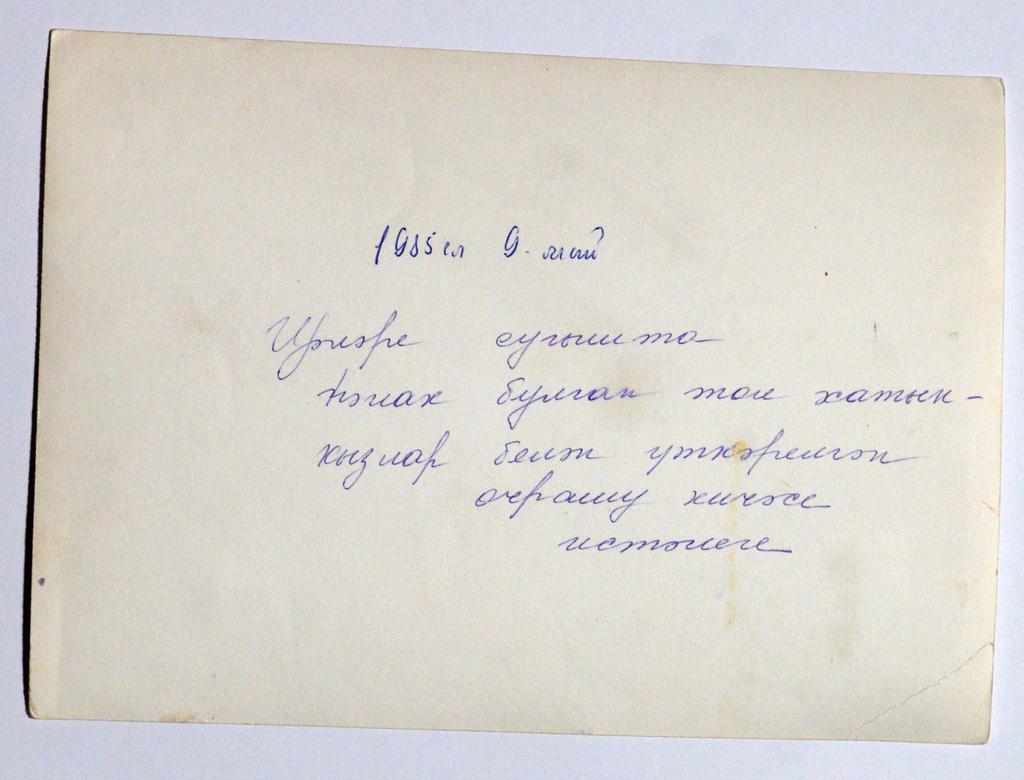 1985 ел 9. май
Ирләре сугышта
һәлак булган тол хатын-
кызлар белән үткәрелгән
очрашу кичәсе
истәлеге